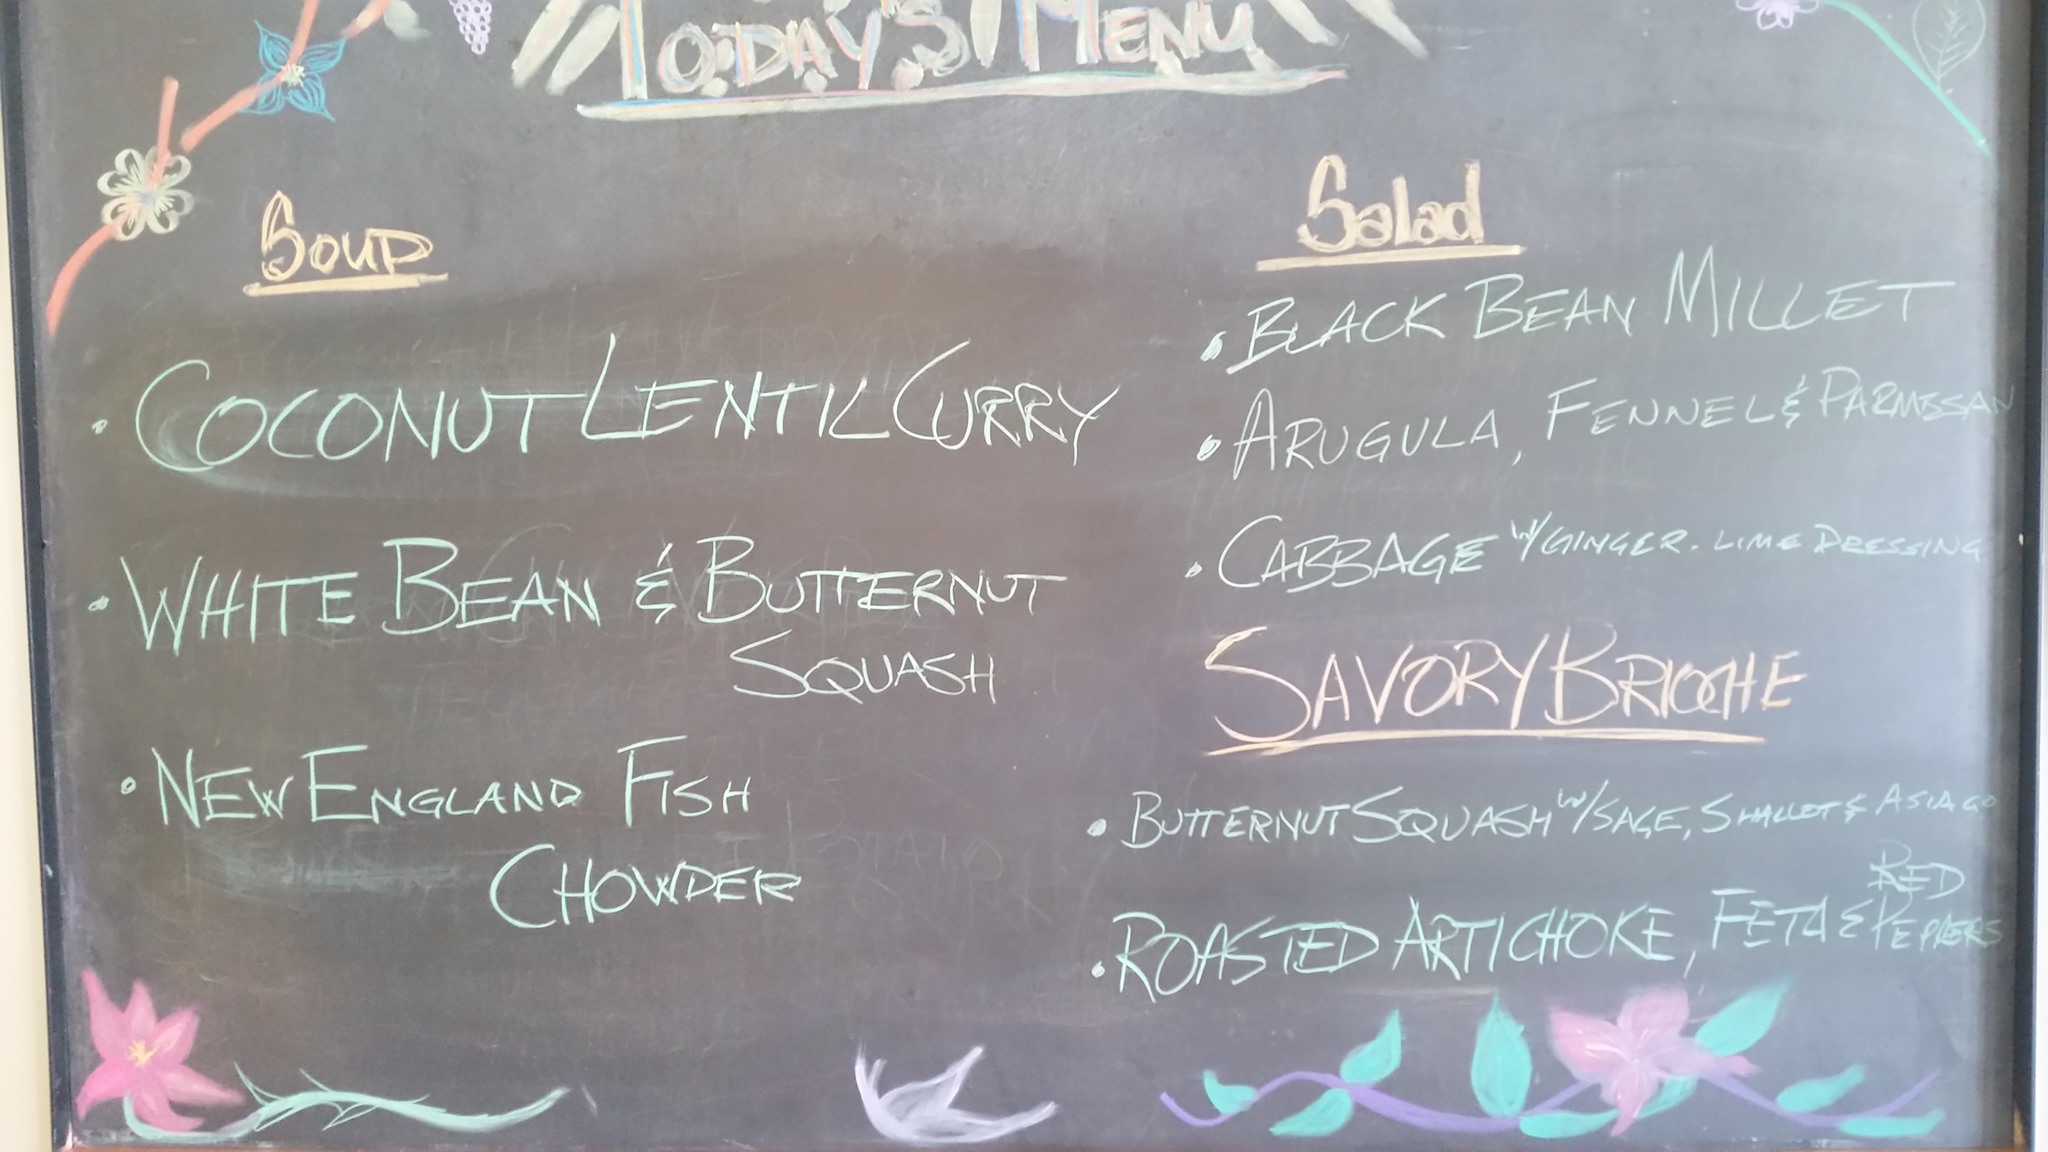 TODAY'S MENU
Soup
• COCONUT LENTIL CURRY
• WHITE BEAN & BUTTERNUT
SQUASH
• NEW ENGLAND FISH
CHOWDER
Salad
• BLACK BEAN MILLET
• ARUGULA, FENNEL & PARMESSAN
• CABBAGE W/GINGER. LIME DRESSING
SAVORY BRIOCHE
• BUTTERNUT SQUASH W/SAGE, SHALLOT & ASIAGO
• ROASTED ARTICHOKE, FETA & RED
PEPPERS